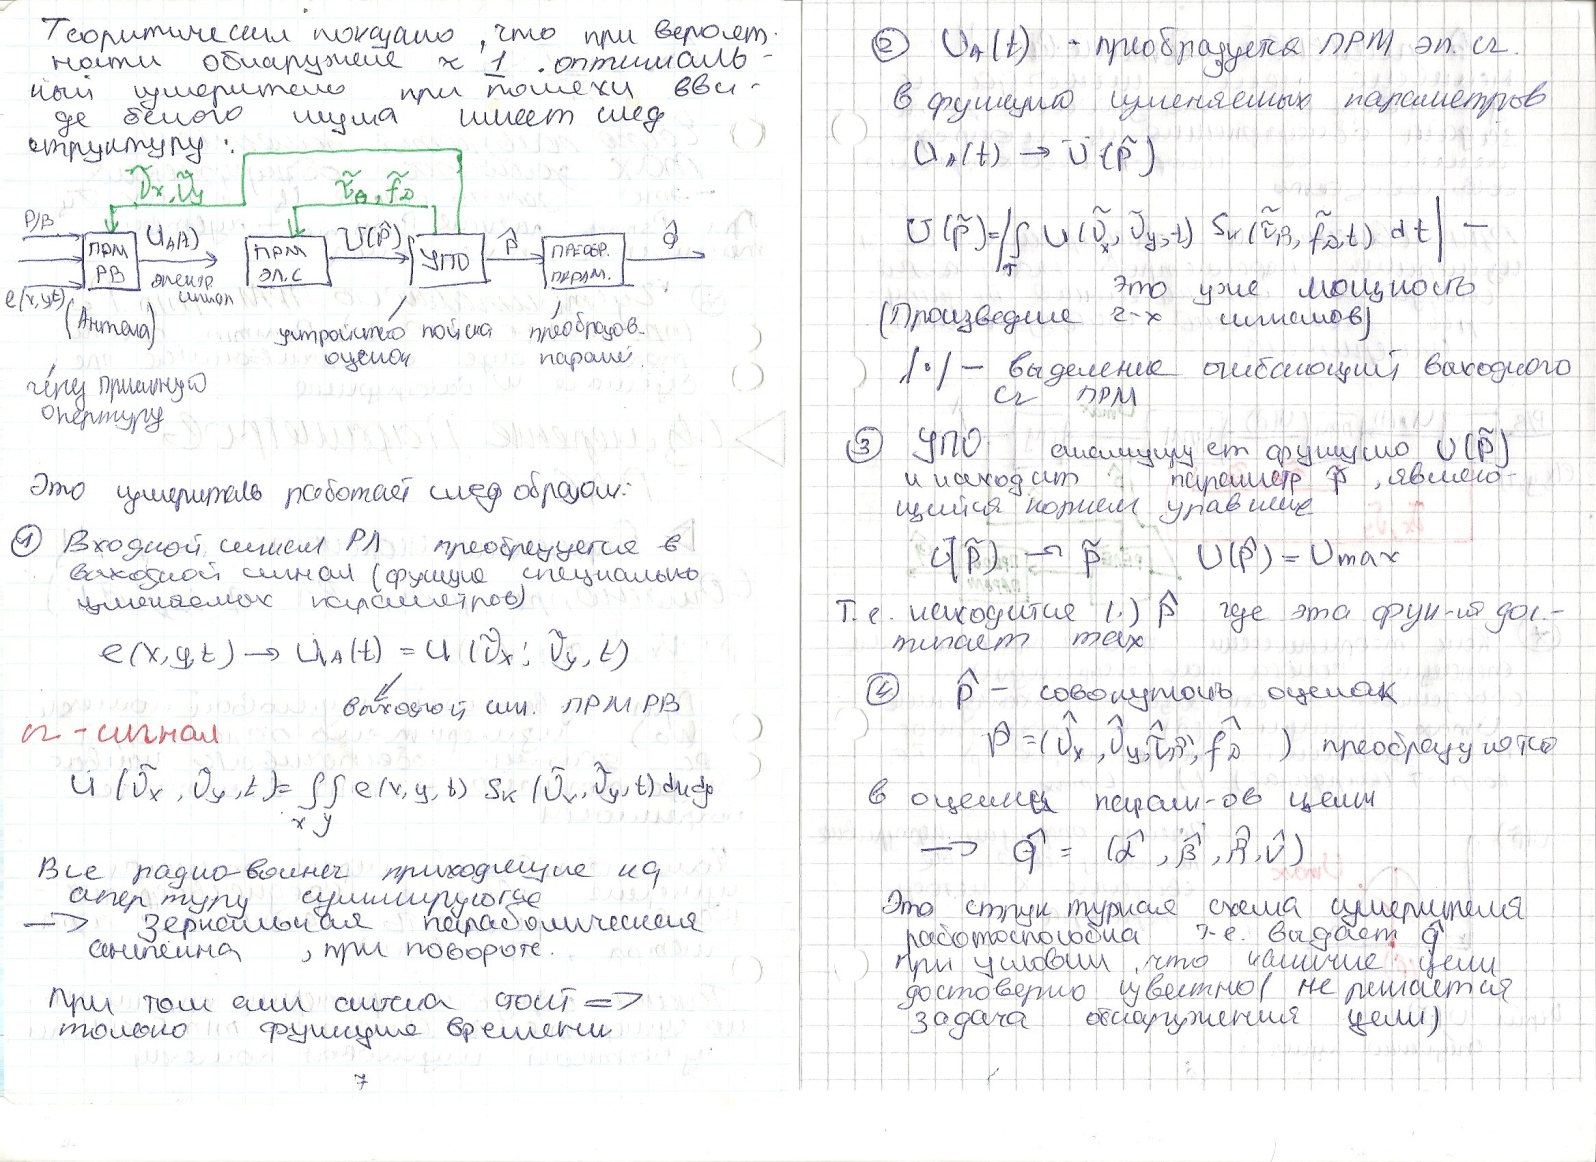 Теоритически показано, что при вероят.
ности обнаружене ≈ 1 . оптималь-
ный измеритель при помехи вви-
де белого шума имеет след
структуру:
Ṽx, Ṽy
τ̃R, f̃D
Р/В
ПРМ
РВ
UA(t)
электр
сигнал
ПРМ
эл.с
U(p̃)
УПО
p̂
ПРЕОБР.
ПАРАМ.
q̂
e(x,y,t)
(Антена)
устройство поиска
оценок
преобразов.
парам.
через приемную
апертуру
Это измеритель работает след образом:
① Входной сигнал РЛ преобразуется в
выходной сигнал (функцию специально
изменяемых параметров)
e(x,y,t) → UA(t) = U (Ṽx; Ṽy, t)
выходной сиг. ПРМ РВ
сг - сигнал
U (Ṽx, Ṽy, t) = ∫∫ e(x,y,t) Sк (Ṽx, Ṽy, t) dxdy
x y
Все радио-волны приходящие на
апертуру суммируются
→ Зеркальная параболическая
антенна , при повороте.
При том если антена стоит =>
только функцию времени
7
② UA(t) - преобразуется ПРМ эл. сг.
в функцию изменяемых параметров
UA(t) → U (p̃)
U (p̃) = |∫ U (Ṽx, Ṽy, t) Sк (τ̃R, f̃D, t) dt| —
T
это уже мощность
(Произведние 2-х сигналов)
/•/ — выделение огибающий выходного
сг ПРМ
③ УПО анализирует функцию U(p̃)
и находит параметр p̂, являю-
щийся корнем уравние
U(p̃) → p̃ U(p̂) = Umax
Т.е. находится (.) p̂ где эта функ-ия дос-
тигает max
④ p̂ - совокупность оценок
p̂ = (V̂x, V̂y, τ̂R, f̂D ) преобразуются
в оценки парам-ов цели
→ q̂ = (α̂, β̂, R̂, V̂)
Это структурная схема измерителя
работоспособна т.е. выдает q̂
при условии, что наличие цели
достоверно известно( не решается
задача обнаружения цели)